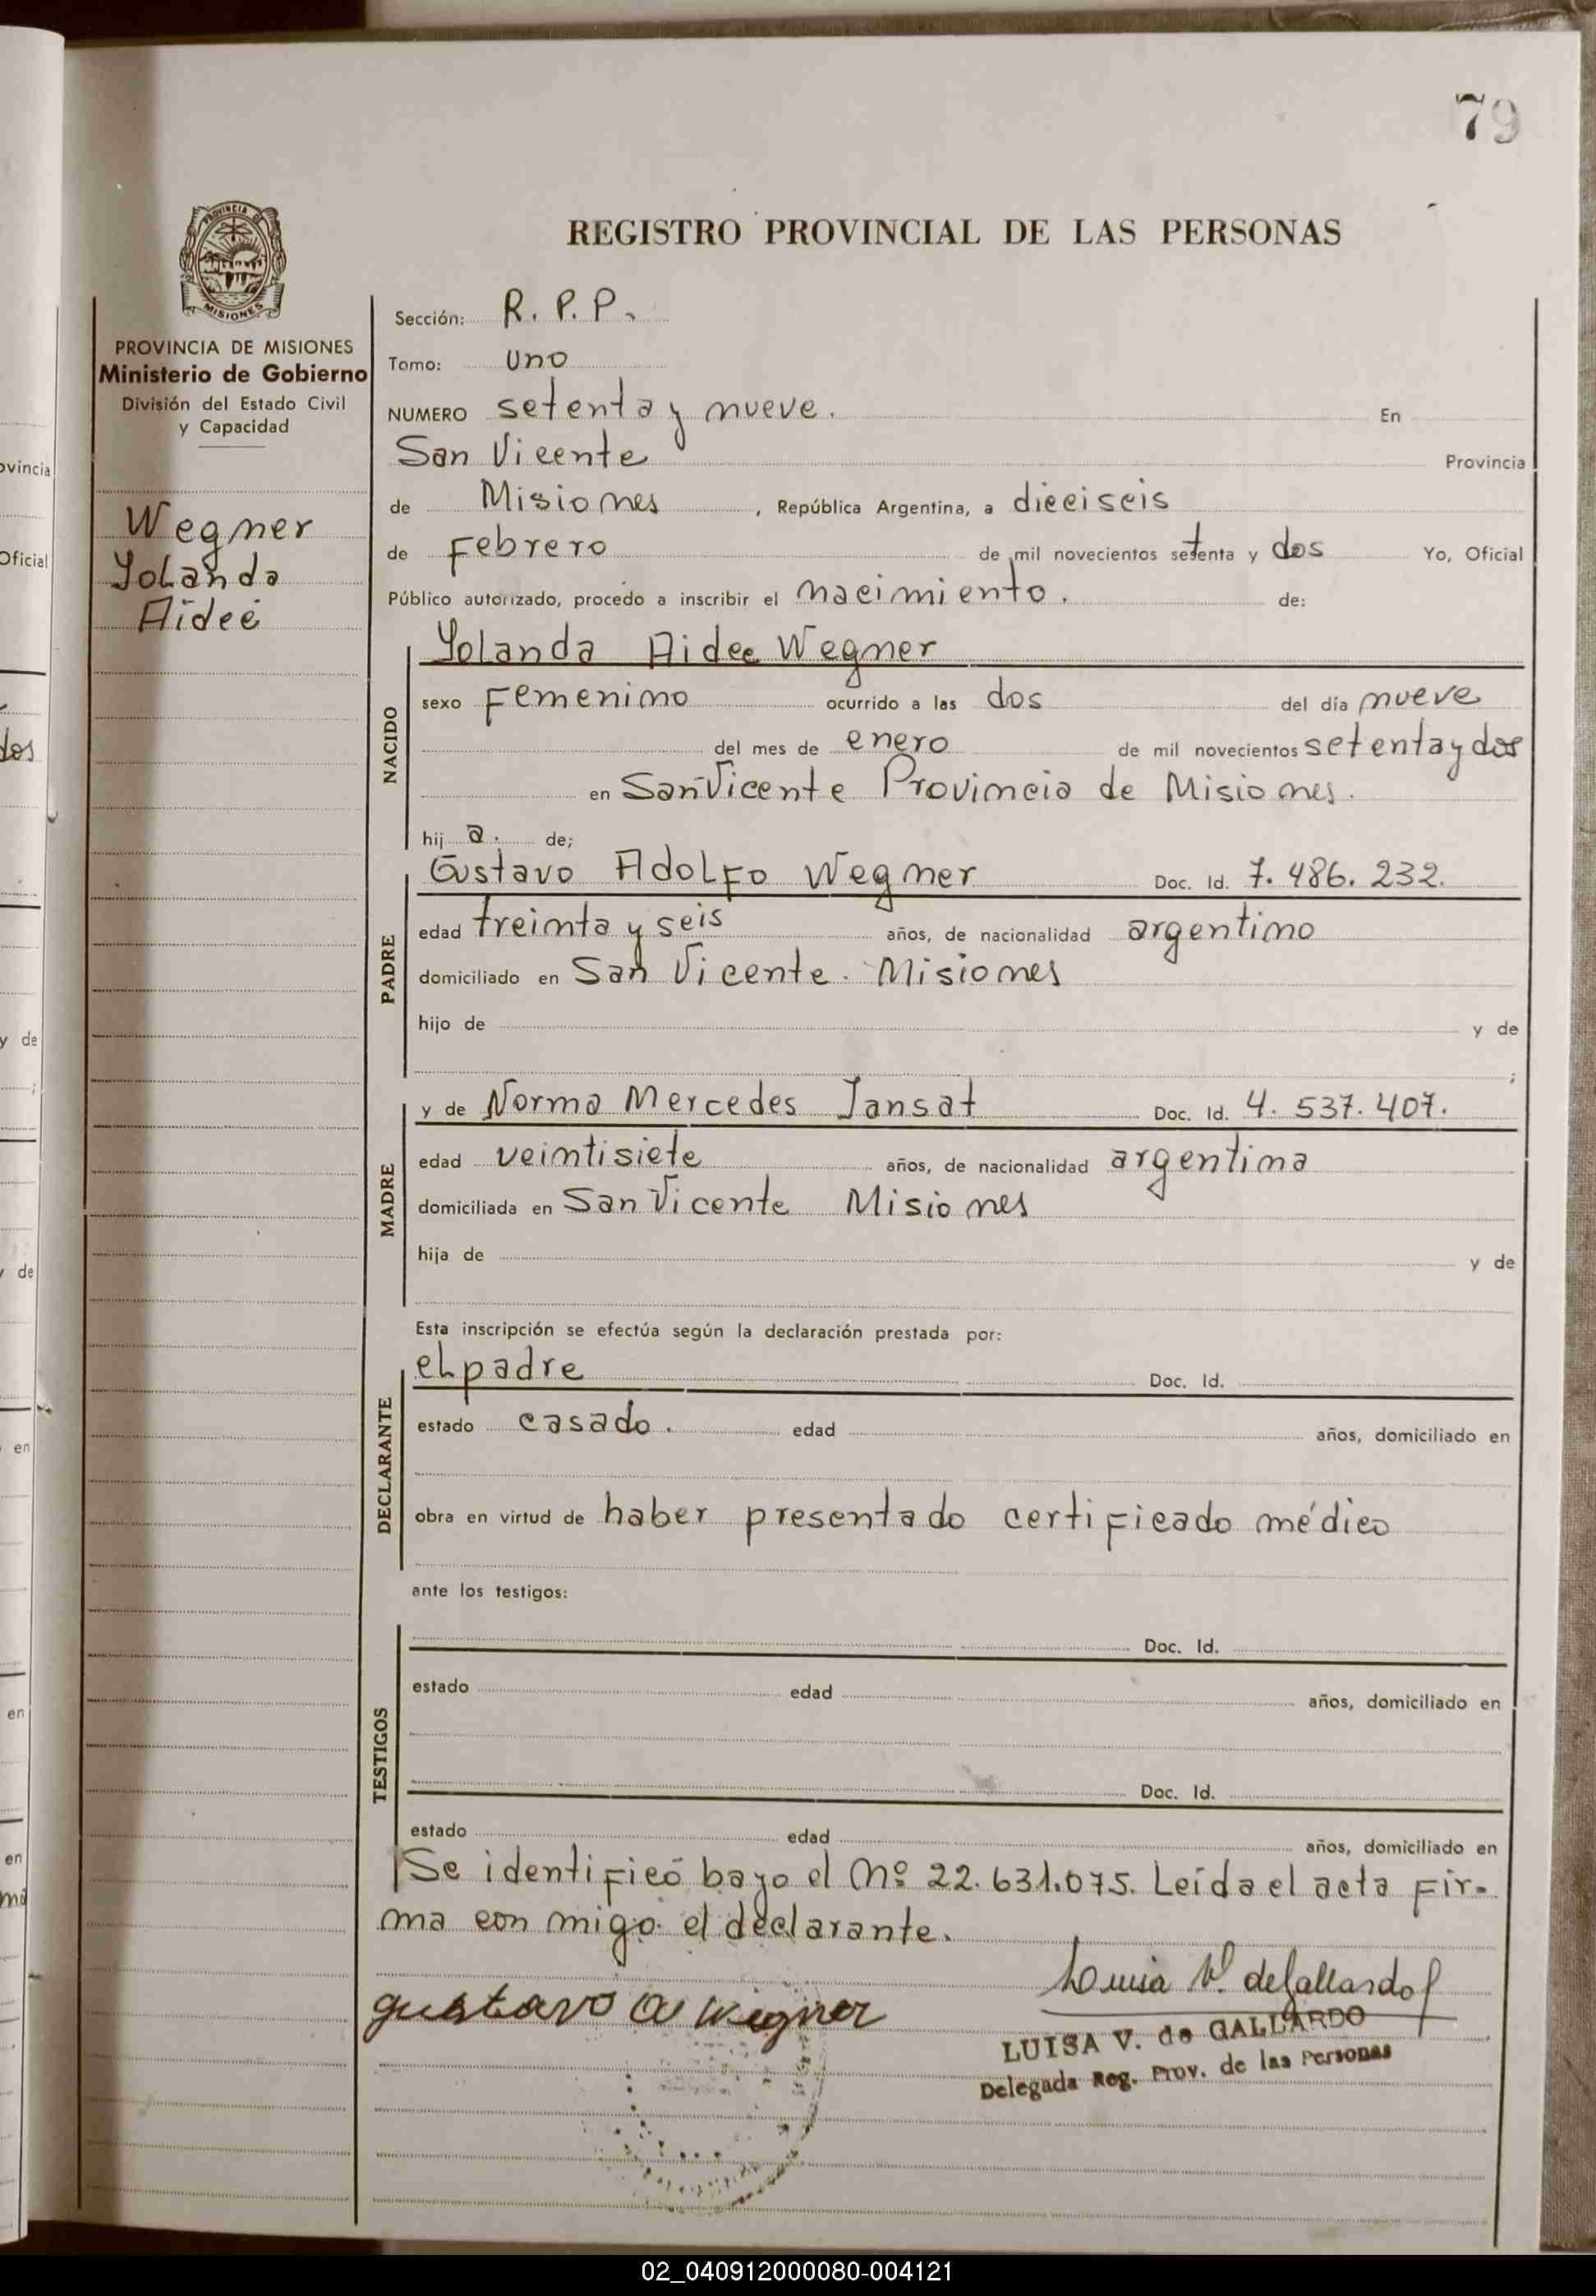 79
REGISTRO PROVINCIAL DE LAS PERSONAS
PROVINCIA DE MISIONES
PROVINCIA DE MISIONES
Ministerio de Gobierno
División del Estado Civil
y Capacidad
Wegner
Yolanda
Aideé
Sección: R. P. P.
Tomo: uno
NUMERO setenta y nueve. En
San Vicente Provincia
de Misiones , República Argentina, a dieciseis
de Febrero de mil novecientos setenta y dos Yo, Oficial
Público autorizado, procedo a inscribir el nacimiento. de:
NACIDO
Yolanda Aidee Wegner
sexo Femenino ocurrido a las dos del día nueve
del mes de enero de mil novecientos setenta y dos
en San Vicente Provincia de Misiones.
hij a. de;
PADRE
Gustavo Adolfo Wegner Doc. Id. 7.486.232.
edad treinta y seis años, de nacionalidad argentino
domiciliado en San Vicente. Misiones
hijo de y de
;
MADRE
y de Norma Mercedes Jansat Doc. Id. 4.537.407.
edad veintisiete años, de nacionalidad argentina
domiciliada en San Vicente Misiones
hija de y de
Esta inscripción se efectúa según la declaración prestada por:
DECLARANTE
el padre Doc. Id.
estado casado. edad años, domiciliado en
obra en virtud de haber presentado certificado médico
ante los testigos:
TESTIGOS
Doc. Id.
estado edad años, domiciliado en
Doc. Id.
estado edad años, domiciliado en
Se identificó bajo el Nº 22.631.075. Leída el acta fir-
ma con migo el declarante.
gustavo a wegner
Luisa V. de Gallardo
LUISA V. de GALLARDO
Delegada Reg. Prov. de las Personas
ovincia
Oficial
dos
y de
;
y de
en
en
en
02_040912000080-004121